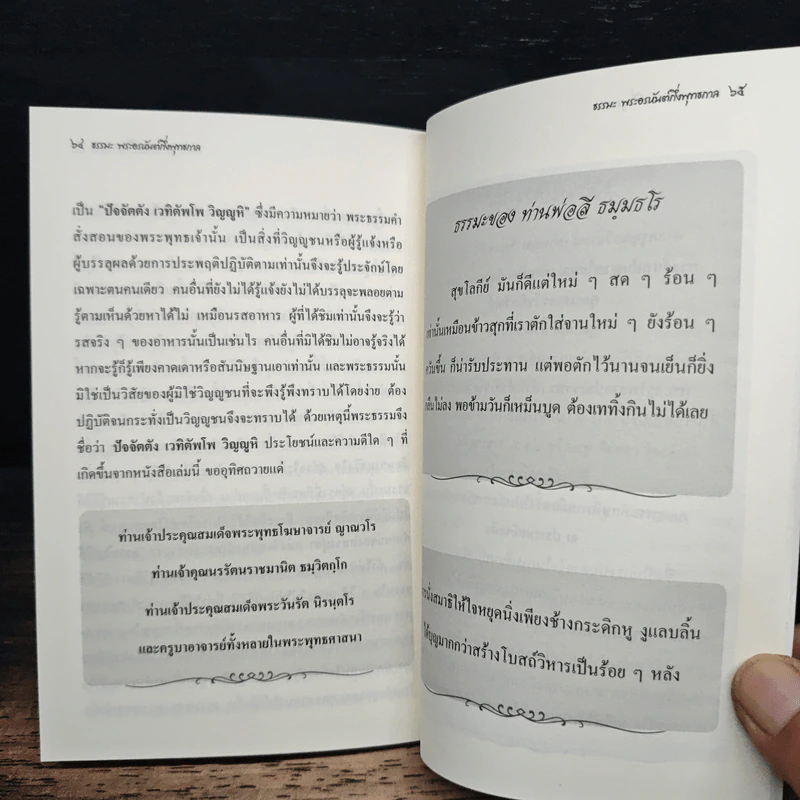 ๖๔ ธรรมะ พระอรหันต์กึ่งพุทธกาล
เป็น "ปัจจัตตัง เวทิตัพโพ วิญญูหิ" ซึ่งมีความหมายว่า พระธรรมคำ
สั่งสอนของพระพุทธเจ้านั้น เป็นสิ่งที่วิญญูชนหรือผู้รู้แจ้งหรือ
ผู้บรรลุผลด้วยการประพฤติปฏิบัติตามเท่านั้นจึงจะรู้ประจักษ์โดย
เฉพาะตนคนเดียว คนอื่นที่ยังไม่ได้รู้แจ้งยังไม่ได้บรรลุจะพลอยตาม
รู้ตามเห็นด้วยหาได้ไม่ เหมือนรสอาหาร ผู้ที่ได้ชิมเท่านั้นจึงจะรู้ว่า
รสจริง ๆ ของอาหารนั้นเป็นเช่นไร คนอื่นที่มิได้ชิมไม่อาจรู้จริงได้
หากจะรู้ก็รู้เพียงคาดเดาหรือสันนิษฐานเอาเท่านั้น และพระธรรมนั้น
มิใช่เป็นวิสัยของผู้มิใช่วิญญูชนที่จะพึงรู้พึงทราบได้โดยง่าย ต้อง
ปฏิบัติจนกระทั่งเป็นวิญญูชนจึงจะทราบได้ ด้วยเหตุนี้พระธรรมจึง
ชื่อว่า ปัจจัตตัง เวทิตัพโพ วิญญูหิ ประโยชน์และความดีใด ๆ ที่
เกิดขึ้นจากหนังสือเล่มนี้ ขออุทิศถวายแด่
ท่านเจ้าประคุณสมเด็จพระพุทธโฆษาจารย์ ญาณวโร
ท่านเจ้าคุณนรรัตนราชมานิต ธมฺวิตกฺโก
ท่านเจ้าประคุณสมเด็จพระวันรัต นิรนฺตโร
และครูบาอาจารย์ทั้งหลายในพระพุทธศาสนา
ธรรมะ พระอรหันต์กึ่งพุทธกาล ๖๕
ธรรมะของ ท่านพ่อลี ธมฺมธโร
สุขโลกีย์ มันก็ดีแต่ใหม่ ๆ สด ๆ ร้อน ๆ
เท่านั้นเหมือนข้าวสุกที่เราตักใส่จานใหม่ ๆ ยังร้อน ๆ
ควันขึ้น ก็น่ารับประทาน แต่พอตักไว้นานจนเย็นก็ยิ่ง
กลืนไม่ลง พอข้ามวันก็เหม็นบูด ต้องเททิ้งกินไม่ได้เลย
นั่งสมาธิให้ใจหยุดนิ่งเพียงช้างกระดิกหู งูแลบลิ้น
ได้บุญมากกว่าสร้างโบสถ์วิหารเป็นร้อย ๆ หลัง